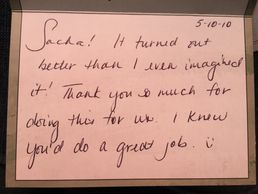 5-10-10
Sacha! It turned out
better than I even imagined
it! Thank you so much for
doing this for us. I know
you'd do a great job. :)